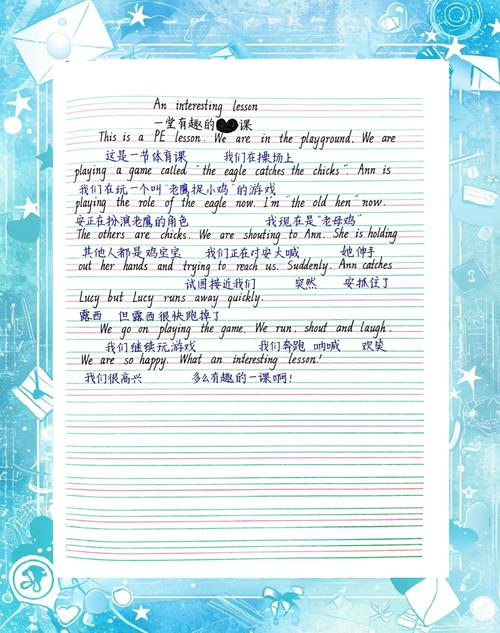 An interesting lesson
一堂有趣的课
This is a PE lesson. We are in the playground. We are
这是一节体育课 我们在操场上
playing a game called "the eagle catches the chicks". Ann is
我们在玩一个叫"老鹰捉小鸡"的游戏
playing the role of the eagle now. I'm "the old hen" now.
安正在扮演老鹰的角色 我现在是"老母鸡"
The others are chicks. We are shouting to Ann. She is holding
其他人都是鸡宝宝 我们正在对安大喊 她伸手
out her hands and trying to reach us. Suddenly. Ann catches
试图接近我们 突然 安抓住了
Lucy but Lucy runs away quickly.
露西 但露西很快跑掉了
We go on playing the game. We run, shout and laugh.
我们继续玩游戏 我们奔跑 呐喊 欢笑
We are so happy. What an interesting lesson!
我们很高兴 多么有趣的一课啊!